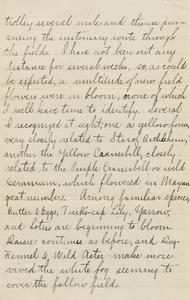 trolley several miles and thence pur-
suing the customary route through
the fields. I had not been out any
distance for several weeks, so, as could
be expected, a multitude of new field
flowers were in bloom, some of which
I will have time to identify. Several
I recognized at sight; one a yellow form
very closely related to Star of Bethlehem,
another the Yellow Cranesbill, closely
related to the Purple Cranesbill or wild
Geranium, which flowered in May in
great numbers. Among familiar species,
Butter & Eggs, Turk's-cap Lily, Yarrow,
and Lotus are beginning to bloom.
Daisies continue as before, and Dog-
Fennel & Wild Aster make more
vivid the white fog seeming to
cover the fallow fields.